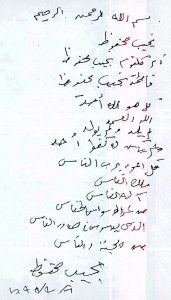 بسم الله الرحمن الرحيم
نجيب محفوظ
أم كلثوم نجيب محفوظ
فاطمة نجيب محفوظ
قل هو الله أحد
الله الصمد
لم يلد ولم يولد
ولم يكن له كفوا أحد
قل أعوذ برب الناس
ملك الناس
إله الناس
من شر الوسواس الخناس
الذى يوسوس فى صدور الناس
من الجنة والناس
نجيب محفوظ